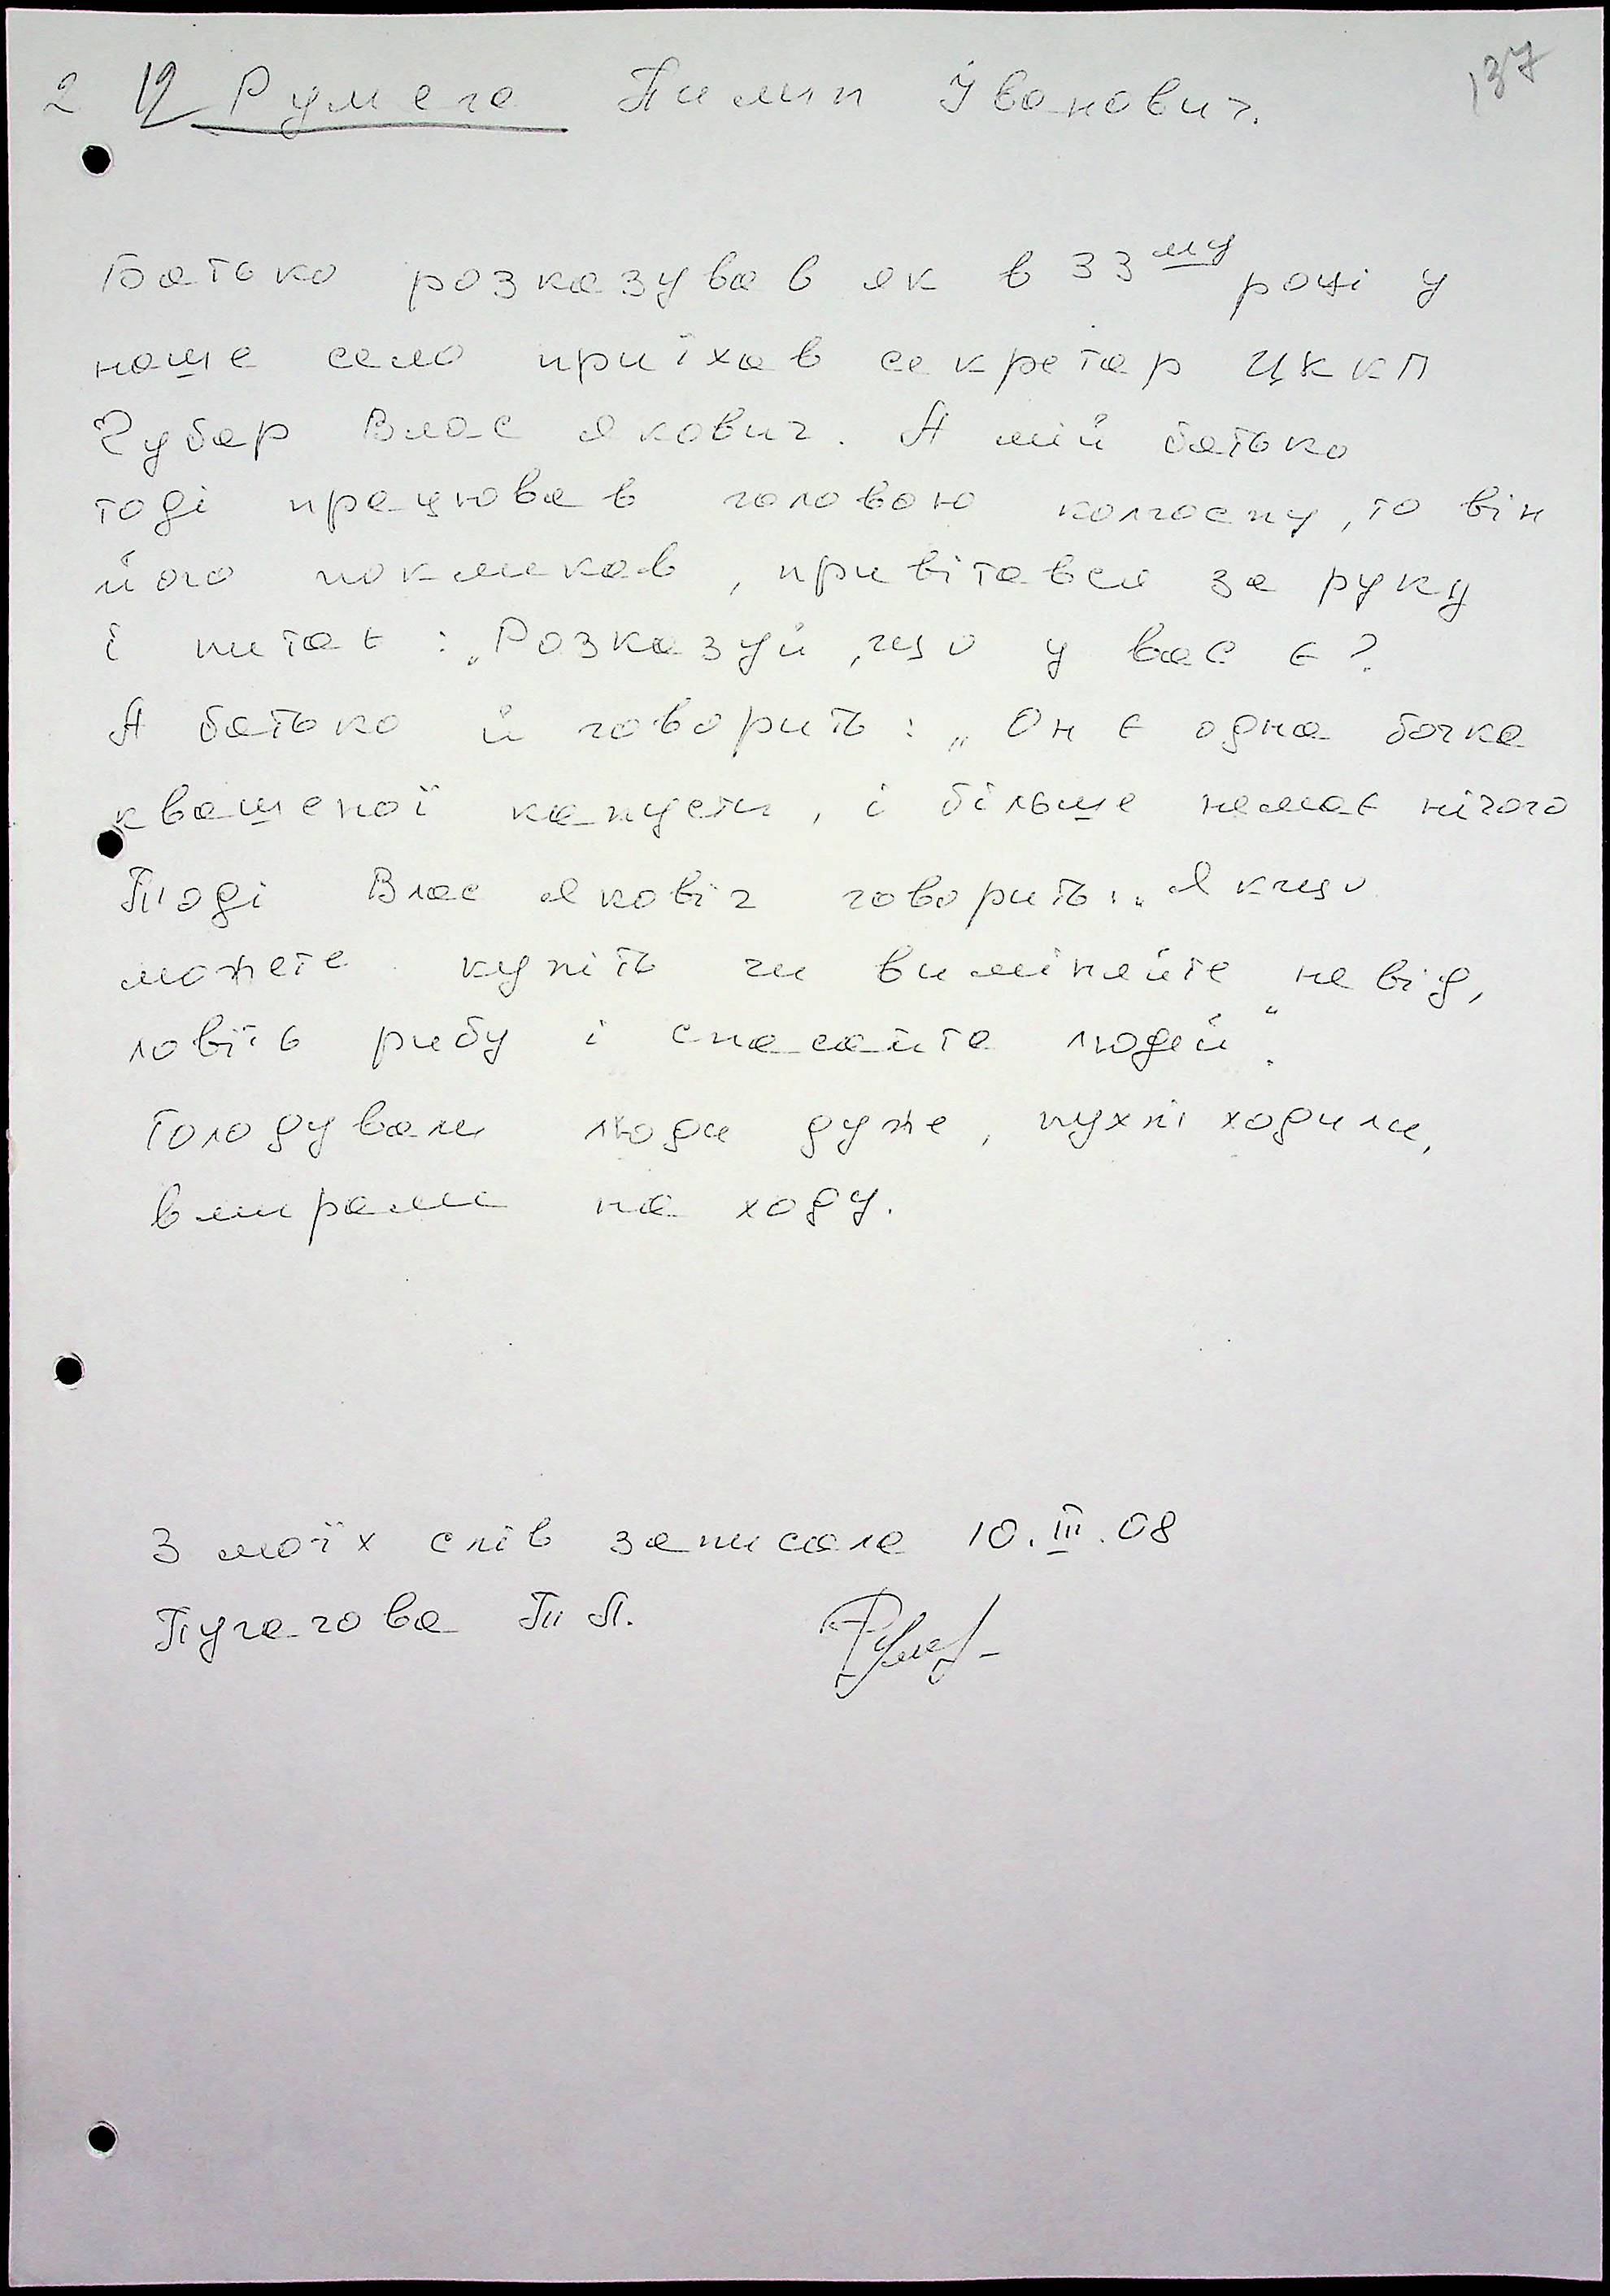 137
2 12 Румега Пимін Іванович.
Батько розказував як в 33му році у
наше село приїхав секретар ЦККП
Чубар Влас Якович. А мій батько
тоді працював головою колгоспу, то він
його покликав, привітався за руку
і питає: „Розказуй, що у вас є?
А батько й говорить: „Он є одна бочка
квашеної капусти, і більше немає нічого
Тоді Влас Яковіч говорить: „Якщо
можете купіть чи виміняйте невід,
ловіть рибу і спасайте людей".
Голодували люди дуже, пухлі ходили,
вмирали на ходу.
З моїх слів записала 10.III.08
Пугачова Т П.